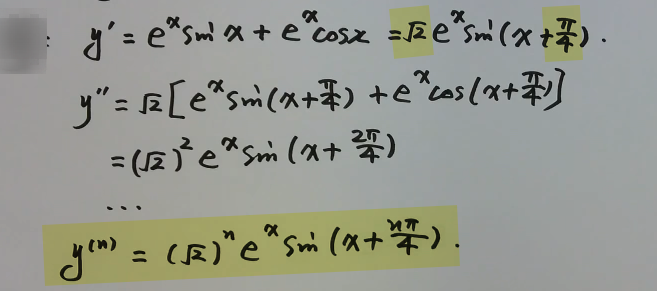 : y' = eˣ sin x + eˣ cos x = √2 eˣ sin(x + π/4).
y'' = √2 [eˣ sin(x + π/4) + eˣ cos(x + π/4)]
= (√2)² eˣ sin(x + 2π/4)
...
y⁽ⁿ⁾ = (√2)ⁿ eˣ sin(x + nπ/4).